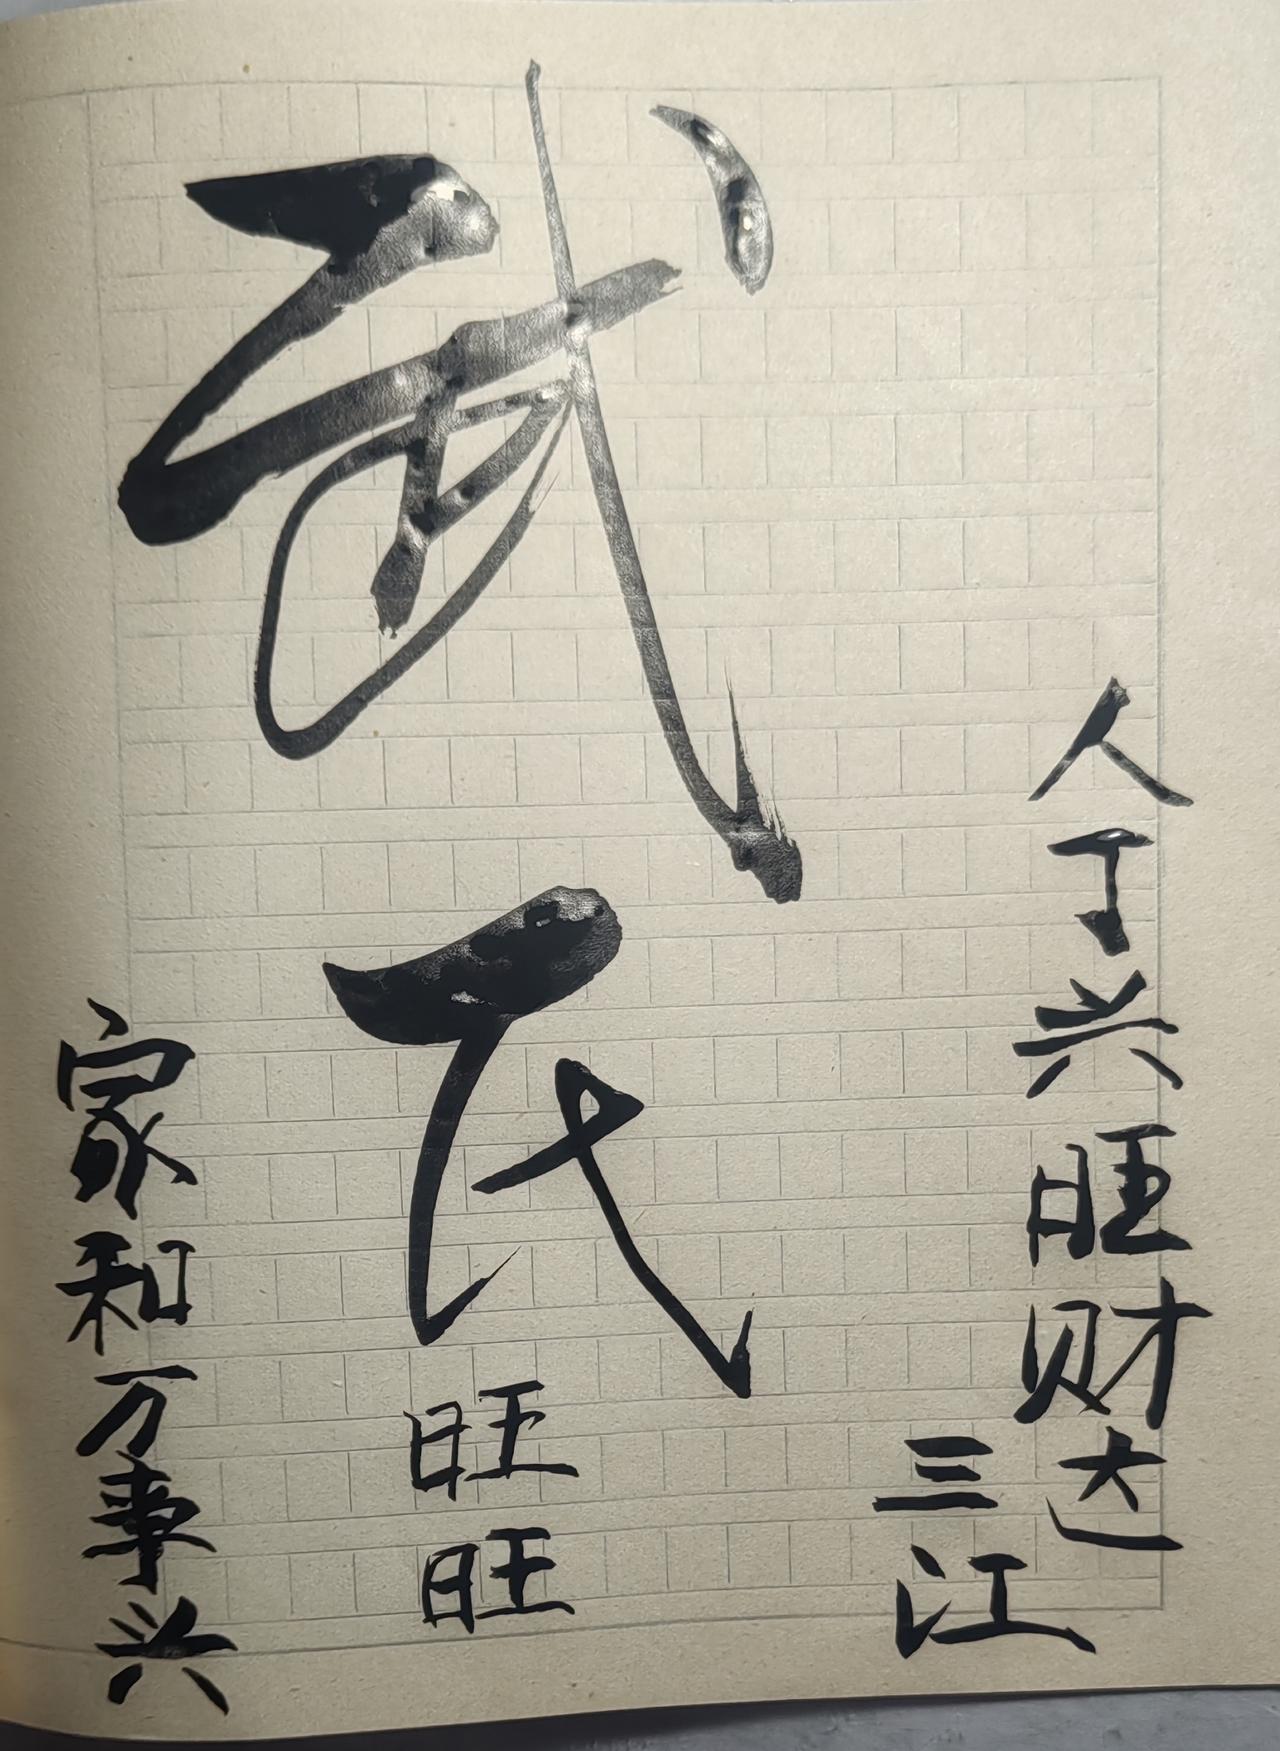 人丁兴旺财达
三江
武氏
旺旺
家和万事兴